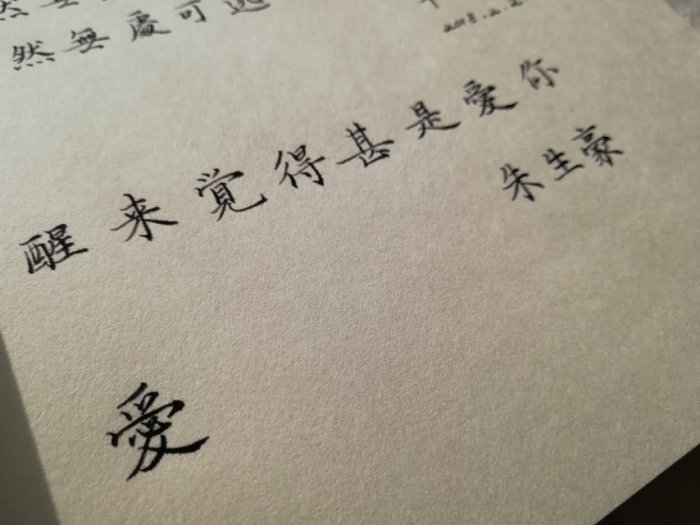 然無處可逃
2018.2.2
醒来覚得甚是愛你
朱生豪
愛